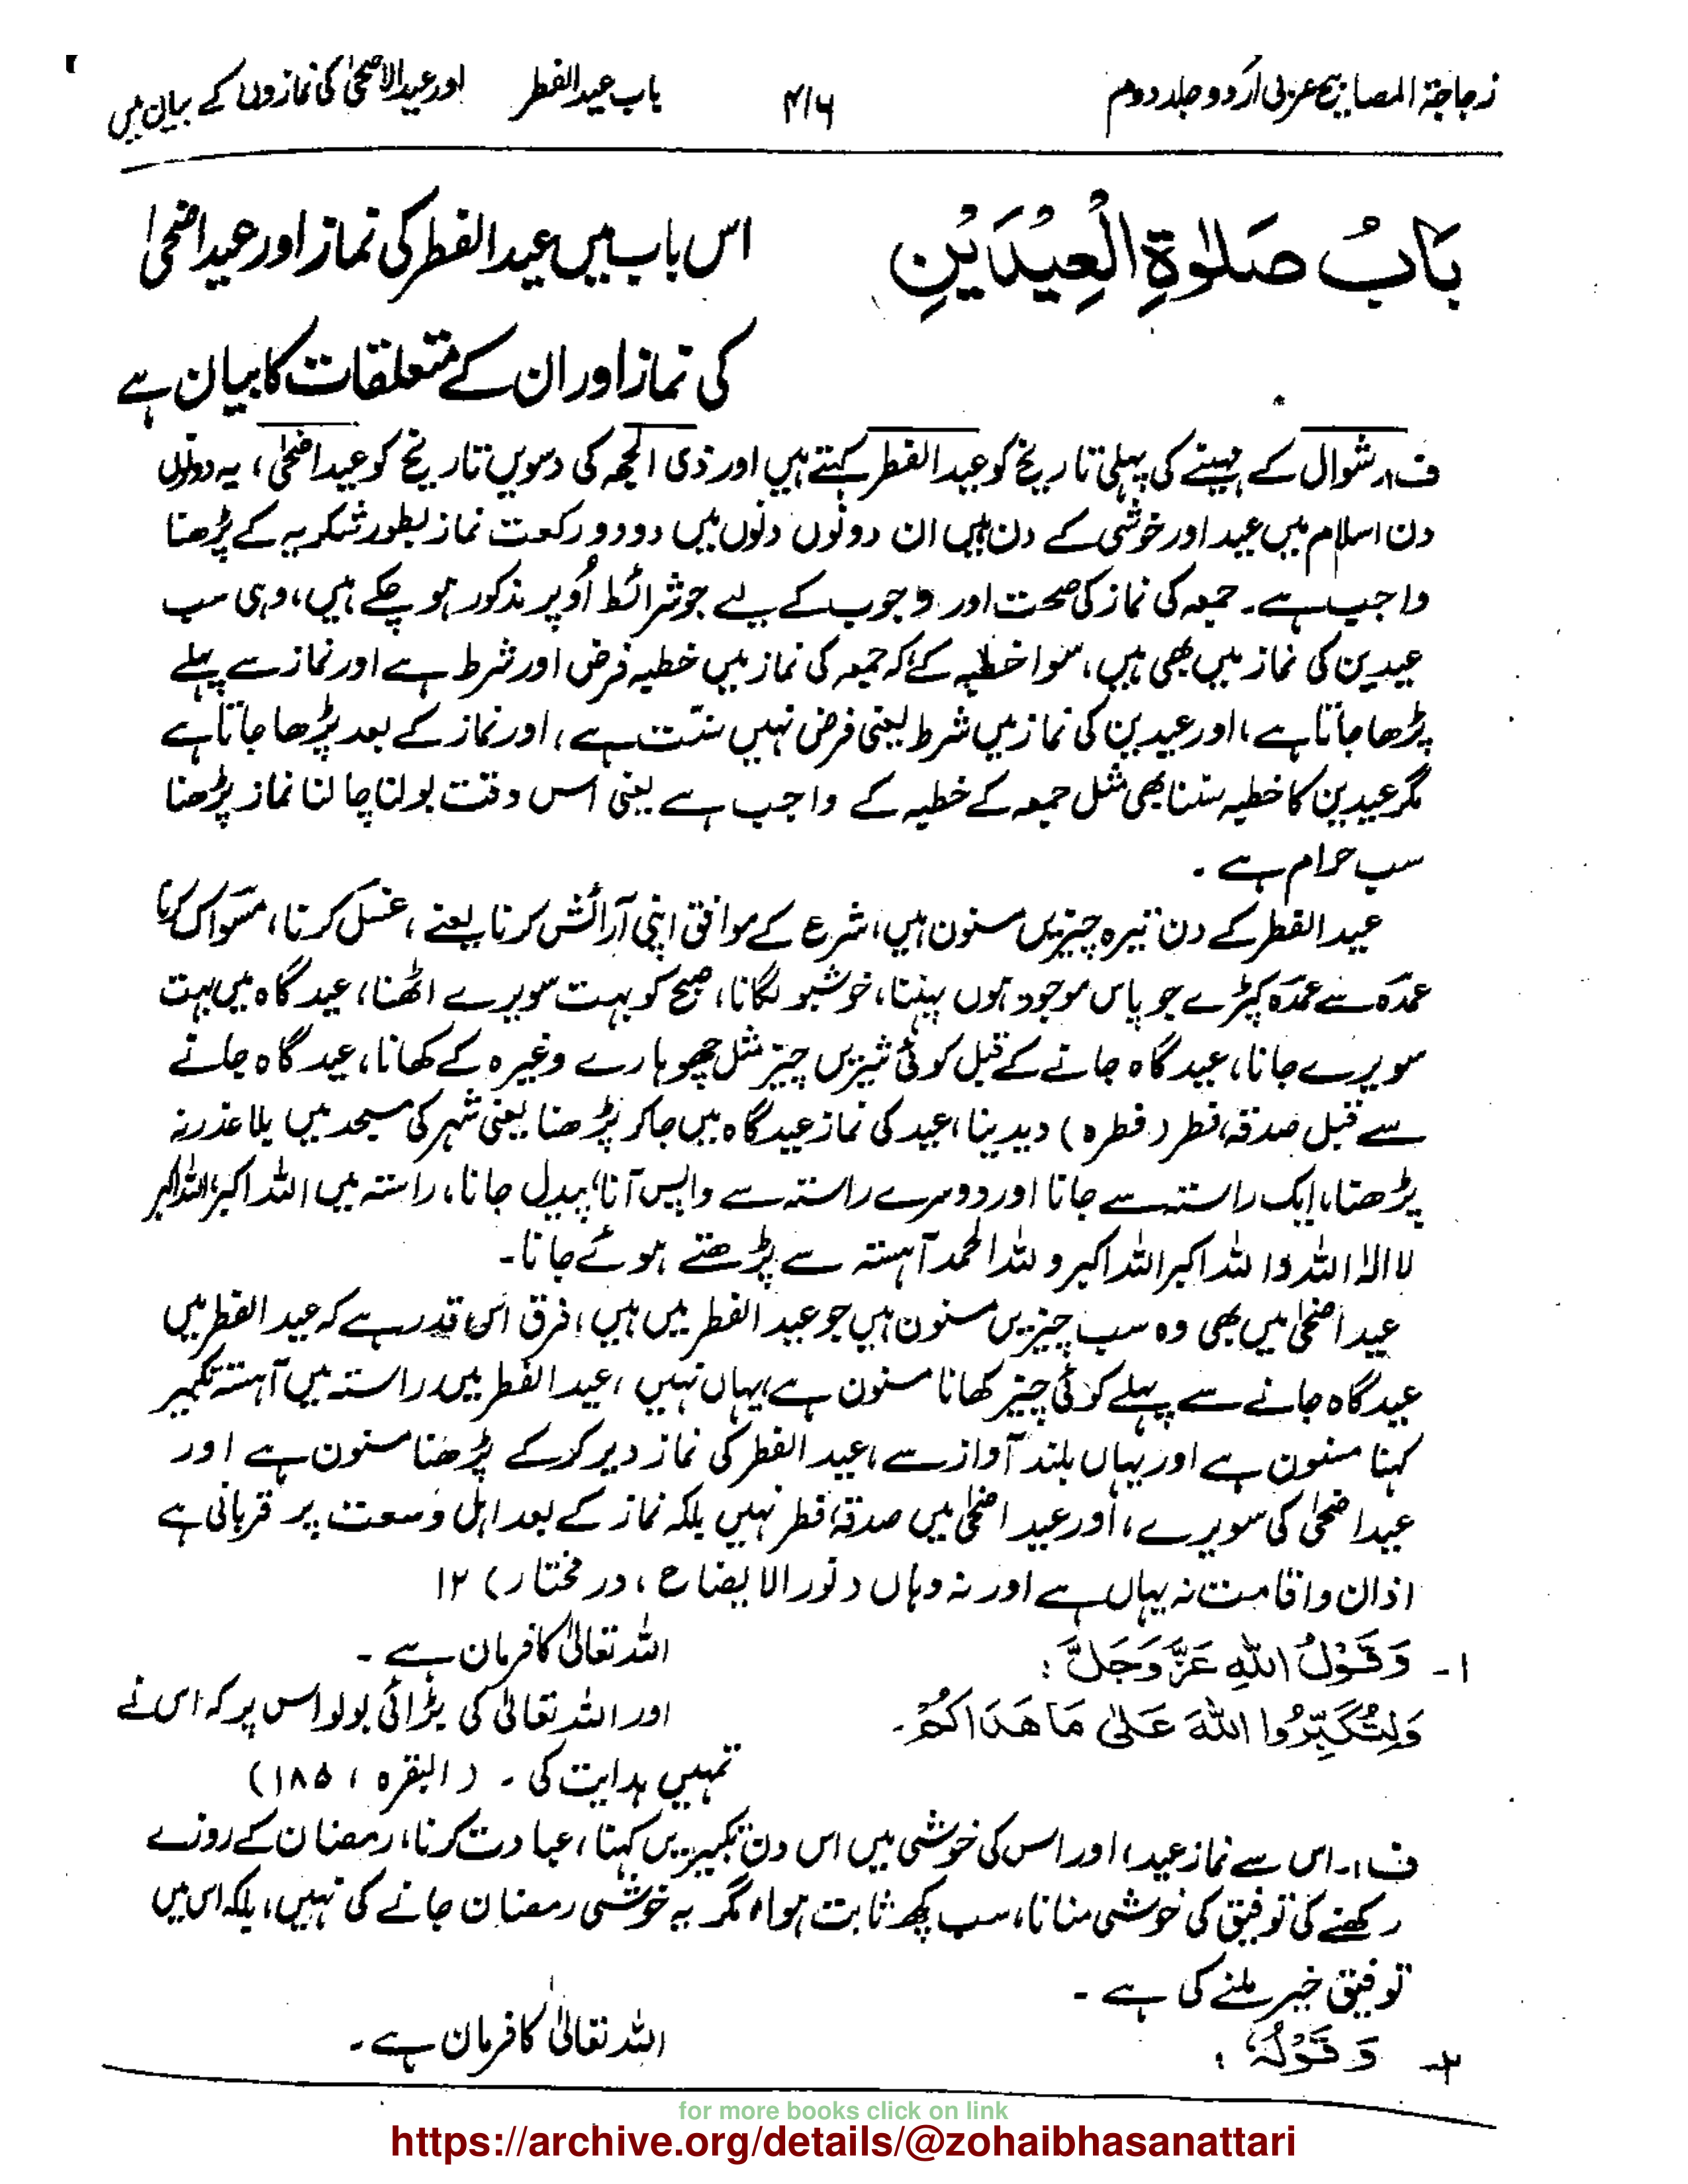 زجاجۃ المصابیح عربی اُردو جلد دوم ۴۱۶ باب عید الفطر اور عید الاضحیٰ کی نمازوں کے بیان میں
بَابُ صَلٰوۃِ الْعِیْدَیْنِ
اس باب میں عید الفطر کی نماز اور عید اضحیٰ
کی نماز اور ان کے متعلقات کا بیان ہے
ف؍ شوال کے مہینے کی پہلی تاریخ کو عید الفطر کہتے ہیں اور ذی الحجہ کی دسویں تاریخ کو عید اضحیٰ، یہ دونوں
دن اسلام میں عید اور خوشی کے دن ہیں ان دونوں دنوں میں دو دو رکعت نماز بطور شکریہ کے پڑھنا
واجب ہے۔ جمعہ کی نماز کی صحت اور وجوب کے لیے جو شرائط اُوپر مذکور ہو چکے ہیں، وہی سب
عیدین کی نماز میں بھی ہیں، سوا خطبہ کے کہ جمعہ کی نماز میں خطبہ فرض اور شرط ہے اور نماز سے پہلے
پڑھا جاتا ہے، اور عیدین کی نماز میں شرط یعنی فرض نہیں سنّت ہے، اور نماز کے بعد پڑھا جاتا ہے
مگر عیدین کا خطبہ سننا بھی مثل جمعہ کے خطبہ کے واجب ہے یعنی اُس وقت بولنا چالنا نماز پڑھنا
سب حرام ہے ۔
عید الفطر کے دن تیرہ چیزیں مسنون ہیں، شرع کے موافق اپنی آرائش کرنا یعنے، غسل کرنا، مسواک کرنا
عمدہ سے عمدہ کپڑے جو پاس موجود ہوں پہننا، خوشبو لگانا، صبح کو بہت سویرے اٹھنا، عیدگاہ میں بہت
سویرے جانا، عیدگاہ جانے کے قبل کوئی شیریں چیز مثل چھوہارے وغیرہ کے کھانا، عیدگاہ جانے
سے قبل صدقۂ فطر (فطرہ) دیدینا، عید کی نماز عیدگاہ میں جا کر پڑھنا یعنی شہر کی مسجد میں بلا عذر نہ
پڑھنا، ایک راستہ سے جانا اور دوسرے راستہ سے واپس آنا، پیدل جانا، راستہ میں اللہ اکبر اللہ اکبر
لا الٰہ الا اللہ واللہ اکبر اللہ اکبر و للہ الحمد آہستہ سے پڑھتے ہوئے جانا۔
عید اضحیٰ میں بھی وہ سب چیزیں مسنون ہیں جو عید الفطر میں ہیں، فرق اس قدر ہے کہ عید الفطر میں
عیدگاہ جانے سے پہلے کوئی چیز کھانا مسنون ہے یہاں نہیں، عید الفطر میں راستہ میں آہستہ تکبیر
کہنا مسنون ہے اور یہاں بلند آواز سے، عید الفطر کی نماز دیر کر کے پڑھنا مسنون ہے اور
عید اضحیٰ کی سویرے، اور عید اضحیٰ میں صدقۂ فطر نہیں بلکہ نماز کے بعد اہل وسعت پر قربانی ہے
اذان و اقامت نہ یہاں ہے اور نہ وہاں (نور الایضاح، در مختار) ۱۲
۱- وَقَوْلُ اللہِ عَزَّ وَجَلَّ :
اللہ تعالیٰ کا فرمان ہے ۔
وَلِتُکَبِّرُوا اللہَ عَلٰی مَا ھَدَاکُمْ۔
اور اللہ تعالیٰ کی بڑائی بولو اس پر کہ اس نے
تمہیں ہدایت کی ۔ (البقرہ ، ۱۸۵)
ف۱۔ اس سے نماز عید، اور اس کی خوشی میں اس دن تکبیریں کہنا، عبادت کرنا، رمضان کے روزے
رکھنے کی توفیق کی خوشی منانا، سب کچھ ثابت ہوا، مگر یہ خوشی رمضان جانے کی نہیں، بلکہ اس میں
توفیق خیر ملنے کی ہے ۔
۲- وَ قَوْلُہٗ :
اللہ تعالیٰ کا فرمان ہے ۔
for more books click on link
https://archive.org/details/@zohaibhasanattari